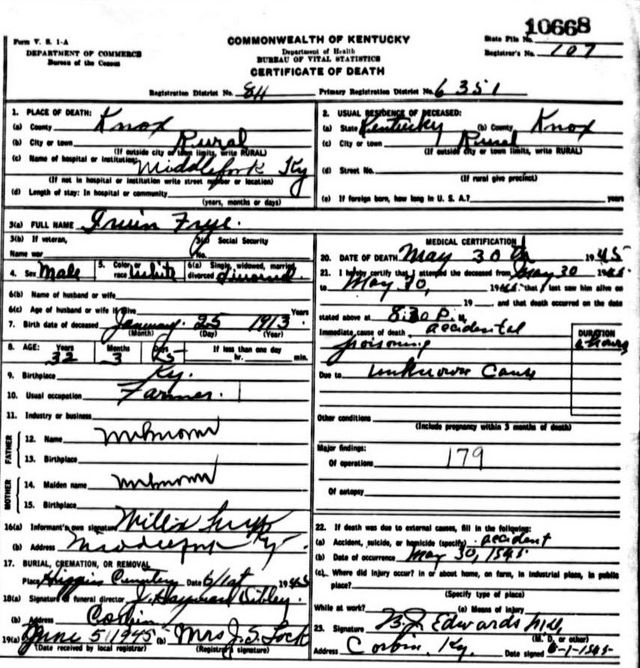 10668
Form V. S. 1-A
COMMONWEALTH OF KENTUCKY
State File No.
DEPARTMENT OF COMMERCE
Department of Health
Registrar's No. 107
Bureau of the Census
BUREAU OF VITAL STATISTICS
CERTIFICATE OF DEATH
Registration District No. 811 Primary Registration District No. 6351
1. PLACE OF DEATH:
(a) County Knox
(b) City or town Rural
(If outside city or town limits, write RURAL)
(c) Name of hospital or institution: Middlefork Ky
(If not in hospital or institution write street number or location)
(d) Length of stay: In hospital or community
(years, months or days)
2. USUAL RESIDENCE OF DECEASED:
(a) State Kentucky (b) County Knox
(c) City or town Rural
(If outside city or town limits, write RURAL)
(d) Street No.
(If rural give precinct)
(e) If foreign born, how long in U. S. A.? years
3(a) FULL NAME Frye
3(b) If veteran, 3(c) Social Security
Name war No.
4. Sex Male 5. Color or race white 6(a) Single, widowed, married, divorced
6(b) Name of husband or wife
6(c) Age of husband or wife if alive Years
7. Birth date of deceased January 25 1913
(Month) (Day) (Year)
8. AGE: Years Months Days If less than one day
32 3 hr. min.
9. Birthplace Ky.
10. Usual occupation Farmer
11. Industry or business
FATHER
12. Name unknown
13. Birthplace
MOTHER
14. Maiden name unknown
15. Birthplace
16(a) Informant's own signature Willie
(b) Address Ky.
17. BURIAL, CREMATION, OR REMOVAL
Place Higgins Cemetery Date 6/1st 1945
18(a) Signature of funeral director
(b) Address Corbin
19(a) June 5 1945 (b) Mrs J. S. Lock
(Date received by local registrar) (Registrar's signature)
MEDICAL CERTIFICATION
20. DATE OF DEATH May 30 1945
21. I hereby certify that I attended the deceased from May 30 1945
to May 30, 1945 that I last saw him alive on
19 and that death occurred on the date
stated above at 8:30 P.m.
Immediate cause of death accidental
DURATION
poisoning
hours
Due to unknown Cause
Other conditions
(Include pregnancy within 3 months of death)
Major findings:
Of operations 179
Of autopsy
22. If death was due to external causes, fill in the following:
(a) Accident, suicide, or homicide (specify) accident
(b) Date of occurrence May 30, 1945
(c) Where did injury occur? in or about home, on farm, in industrial place, in public
place?
(Specify type of place)
While at work? (e) Means of injury
23. Signature B. J. Edwards M.D.
(M. D. or other)
Address Corbin, Ky. Date signed 6-1-1945